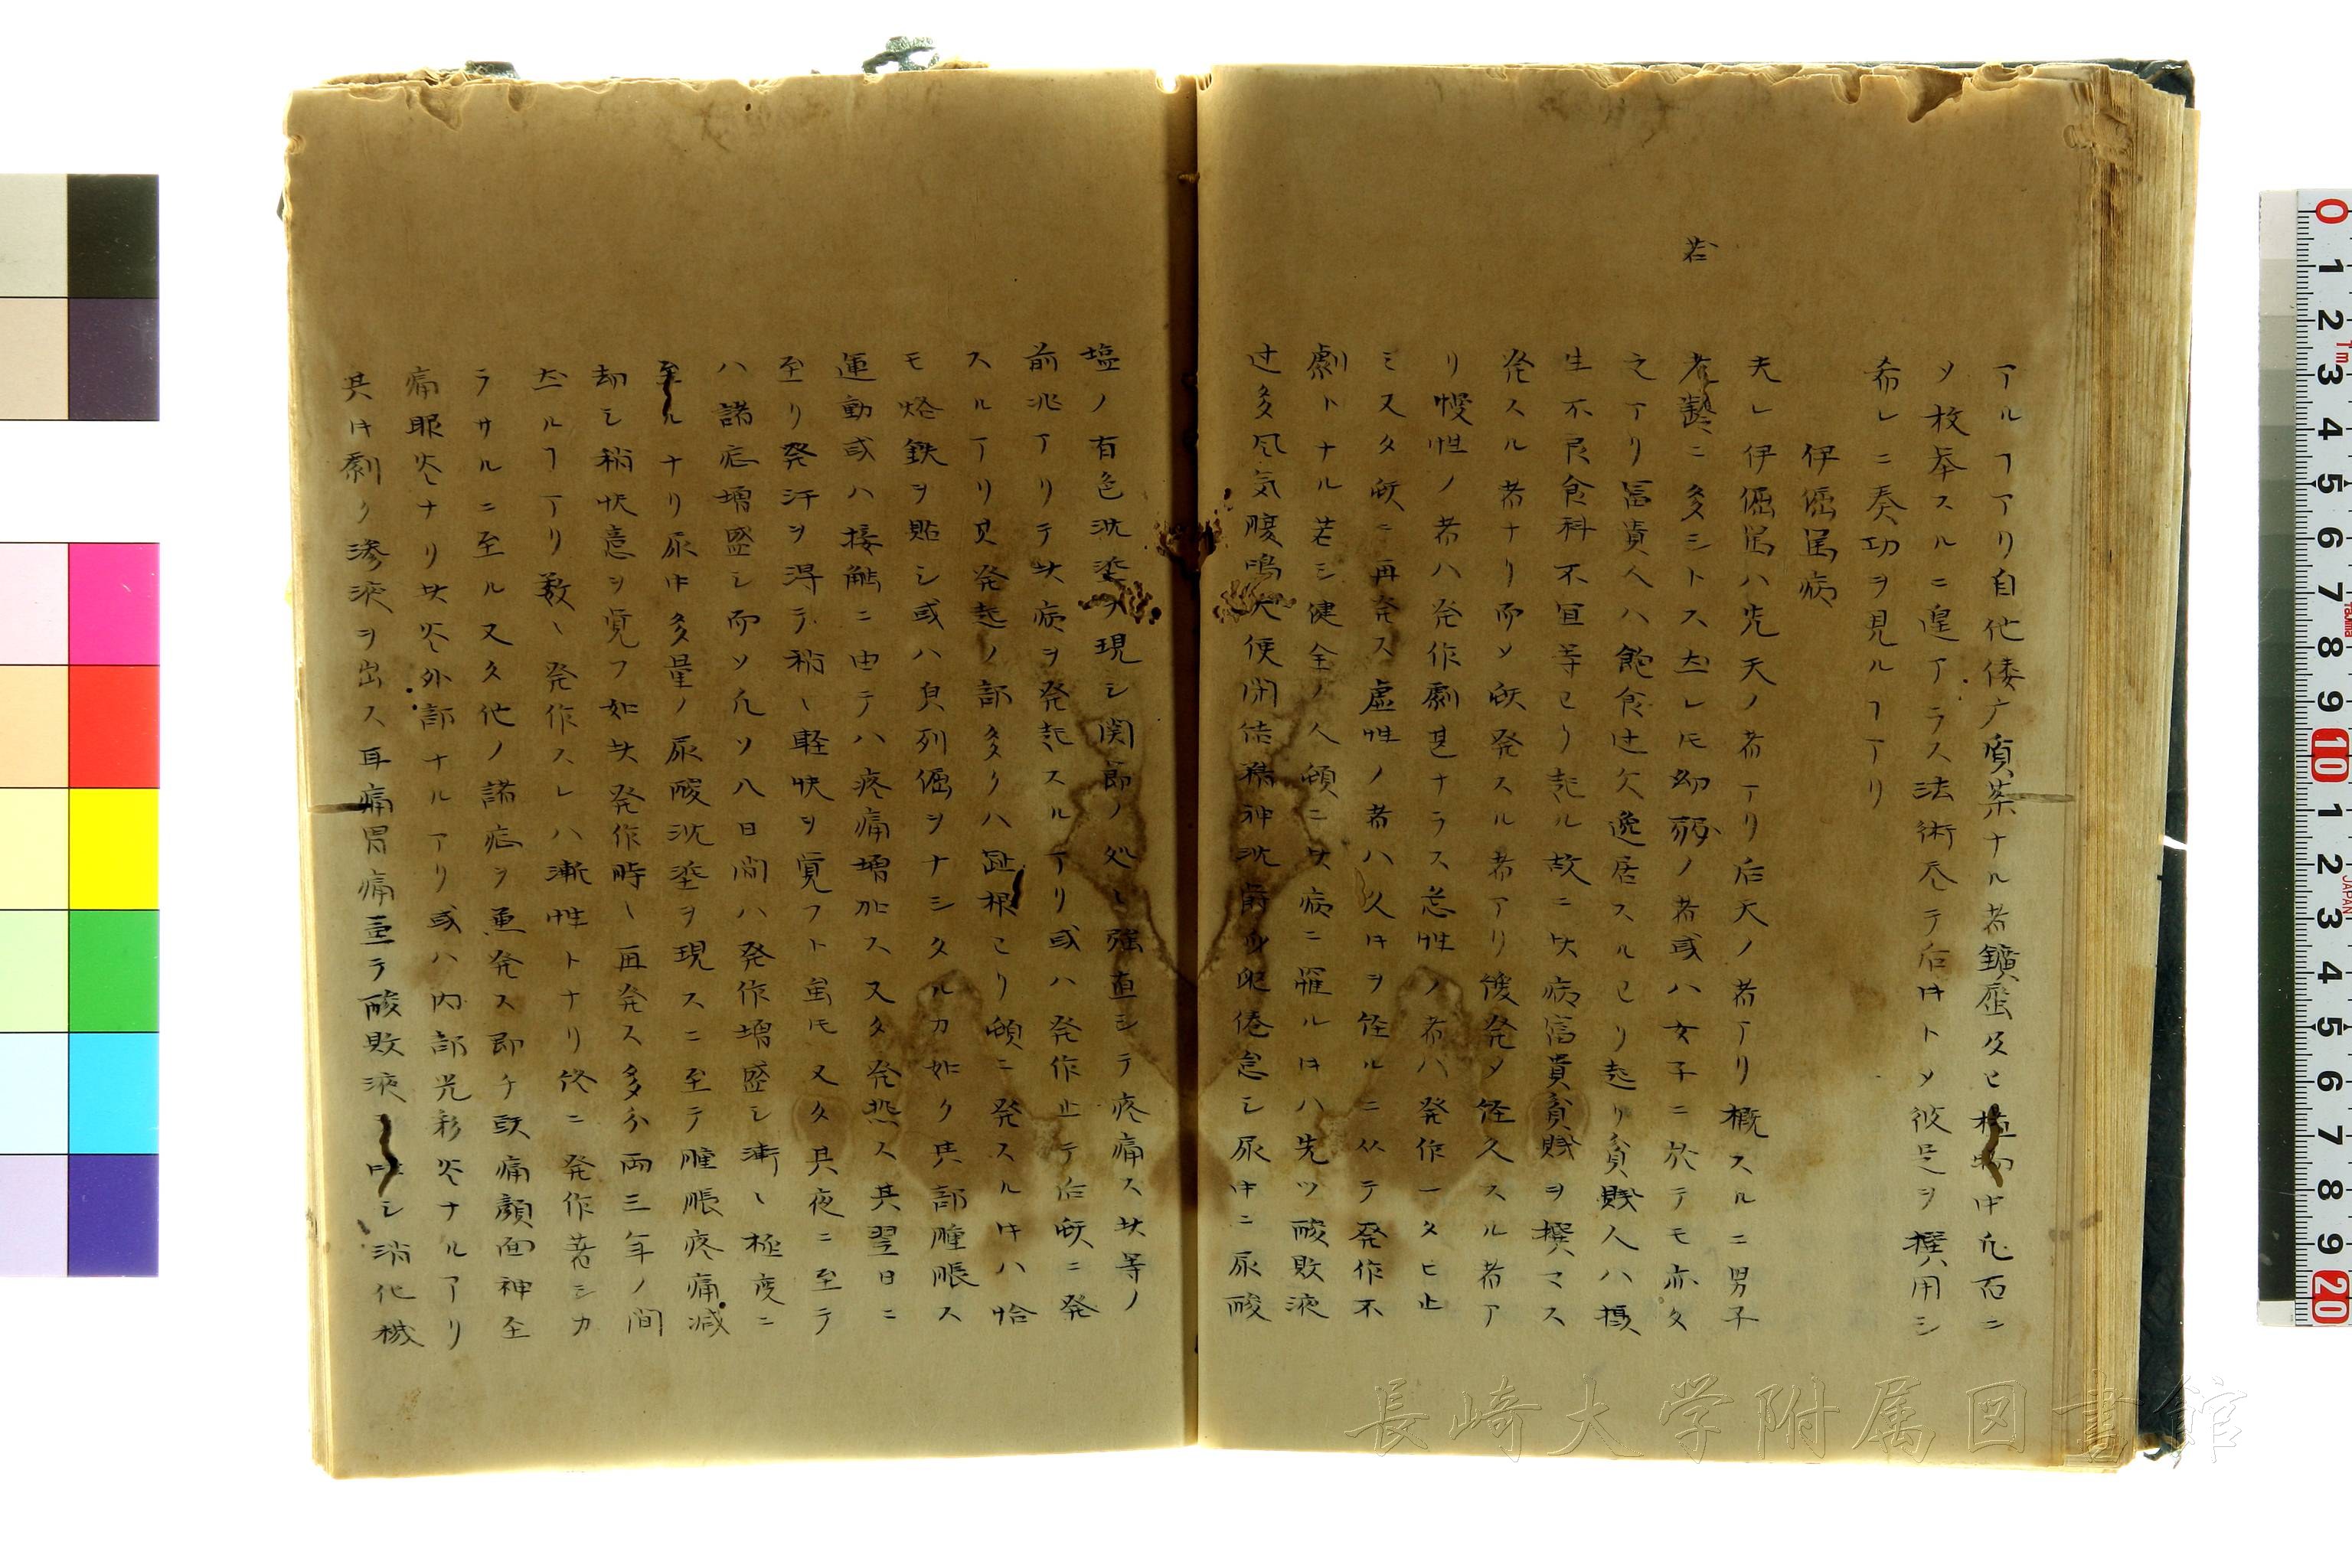 アルヿアリ自他倭广質系ナル者鑛屬及ヒ植物中凡百ニ
ソ枚挙スルニ遑アラス法術尽テ后ハトメ彼是ヲ撰用シ
希レニ奏功ヲ見ルヿアリ
伊倔屈病
若
夫レ伊倔屈ハ先天ノ者アリ后天ノ者アリ概スルニ男子
老齢ニ多シトス然レ𪜈幼弱ノ者或ハ女子ニ於テモ亦タ
之アリ冨貴人ハ飽食过欠逸居スルヨリ起リ貧賎人ハ摂
生不良食科不宜等ヨリ起ル故ニ此病富貴貧賎ヲ撰マス
発スル者ナリ而ソ頓発スル者アリ緩発メ経久スル者ア
リ慢性ノ者ハ発作劇甚ナラス急性ノ者ハ発作一タヒ止
ミ又タ頓ニ再発ス虚性ノ者ハ久キヲ経ルニ从テ発作不
劇トナル若シ健全ノ人頓ニ此病ニ罹ルキハ先ツ酸敗液
过多风気腹鳴大便閉结精神沈鬱四肢倦怠シ尿中ニ尿酸
塩ノ有色沈垽ヲ現シ関節ノ処々強直シテ疼痛ス此等ノ
前兆アリテ此病ヲ発起スルアリ或ハ発作止テ后頓ニ発
スルアリ其発起ノ部多クハ趾根ヨリ頓ニ発スルキハ恰
モ烙鉄ヲ貼シ或ハ貝列倔ヲナシタルカ如ク其部腫脹ス
運動或ハ接触ニ由テハ疼痛増加ス又タ発熱ス其翌日ニ
至リ発汗ヲ得テ稍々軽快ヲ覚フト虽𪜈又タ其夜ニ至テ
ハ諸症増盛シ而ソ凡ソ八日間ハ発作増盛シ漸々極度ニ
至ルナリ尿中多量ノ尿酸沈垽ヲ現スニ至テ腫脹疼痛減
却シ稍快意ヲ覚フ如此発作時々再発ス多分両三年ノ間
然ルヿアリ数々発作スレハ漸性トナリ终ニ発作著シカ
ラサルニ至ル又タ他ノ諸症ヲ兼発ス即チ頭痛顔面神至
痛眼炎ナリ此炎外部ナルアリ或ハ内部光彩炎ナルアリ
其キ劇ク滲液ヲ出ス耳痛胃痛並テ酸敗液ヲ吐シ消化機
長崎大学附属図書館